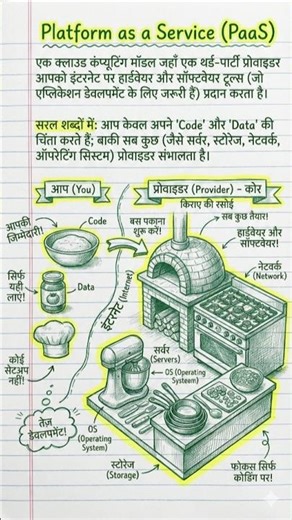 Platform as a Service (PaaS)
एक क्लाउड कंप्यूटिंग मॉडल जहाँ एक थर्ड-पार्टी प्रोवाइडर
आपको इंटरनेट पर हार्डवेयर और सॉफ्टवेयर टूल्स (जो
एप्लिकेशन डेवलपमेंट के लिए जरूरी हैं) प्रदान करता है।
सरल शब्दों में: आप केवल अपने 'Code' और 'Data' की
चिंता करते हैं; बाकी सब कुछ (जैसे सर्वर, स्टोरेज, नेटवर्क,
ऑपरेटिंग सिस्टम) प्रोवाइडर संभालता है।
आप (You)
प्रोवाइडर (Provider) - कोर
किराए की रसोई
सब कुछ तैयार!
आपकी
जिम्मेदारी!
Code
बस पकाना
शुरू करें!
हार्डवेयर और
सॉफ्टवेयर!
सिर्फ
यही
लाएं!
Data
इंटरनेट (Internet)
नेटवर्क
(Network)
कोई
सेटअप
नहीं!
सर्वर
(Servers)
OS (Operating
Systeem)
तेज़
डेवलपमेंट!
OS
(Operating
System)
स्टोरेज
(Storage)
फोकस सिर्फ
कोडिंग पर!